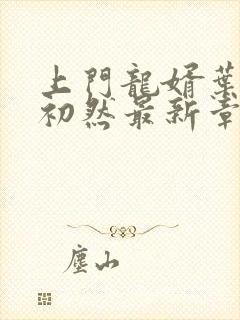 上門龍婿葉
初然最新章
塵山